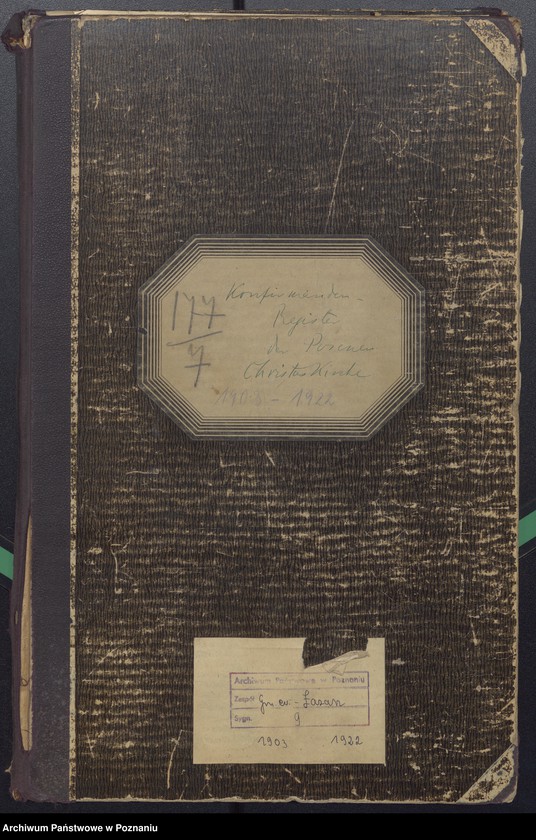 177
7
Konfirmanden-
Register
der Posener
Christuskirche
1903 - 1922
Archiwum Państwowe w Poznaniu
Zespół Gm. ew. - Łazarz
Sygn. 9
1903 1922
Archiwum Państwowe w Poznaniu
Archiwum Państwowe w Poznaniu